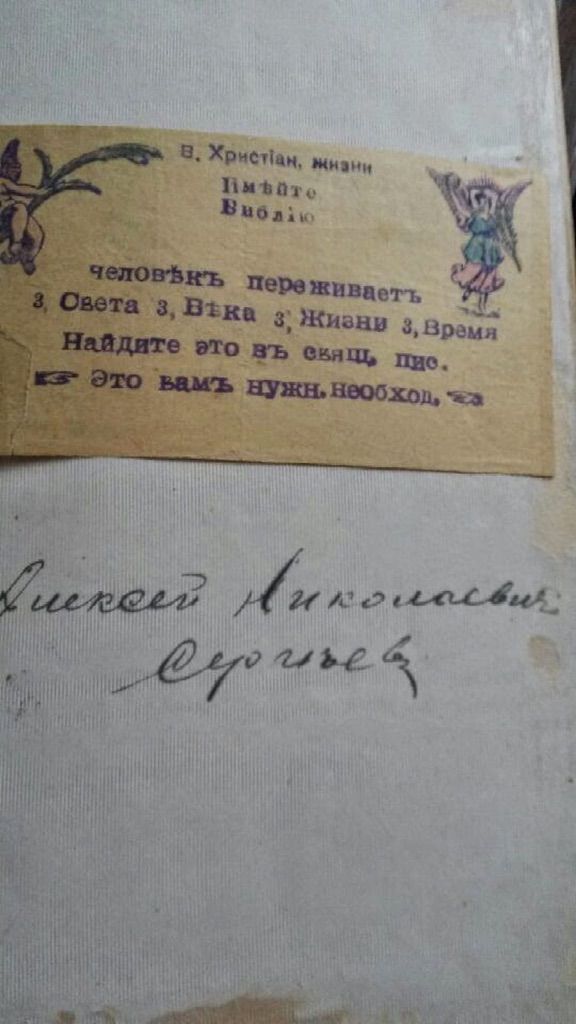 В. Христіан, жизни
Имѣйте
Библію
человѣкъ переживаетъ
3, Света 3, Вѣка 3, Жизни 3, Время
Найдите это въ свящ, пис.
☞ Это вамъ нужн. необход, ☜
Алексей Николаевич
Сергѣевъ